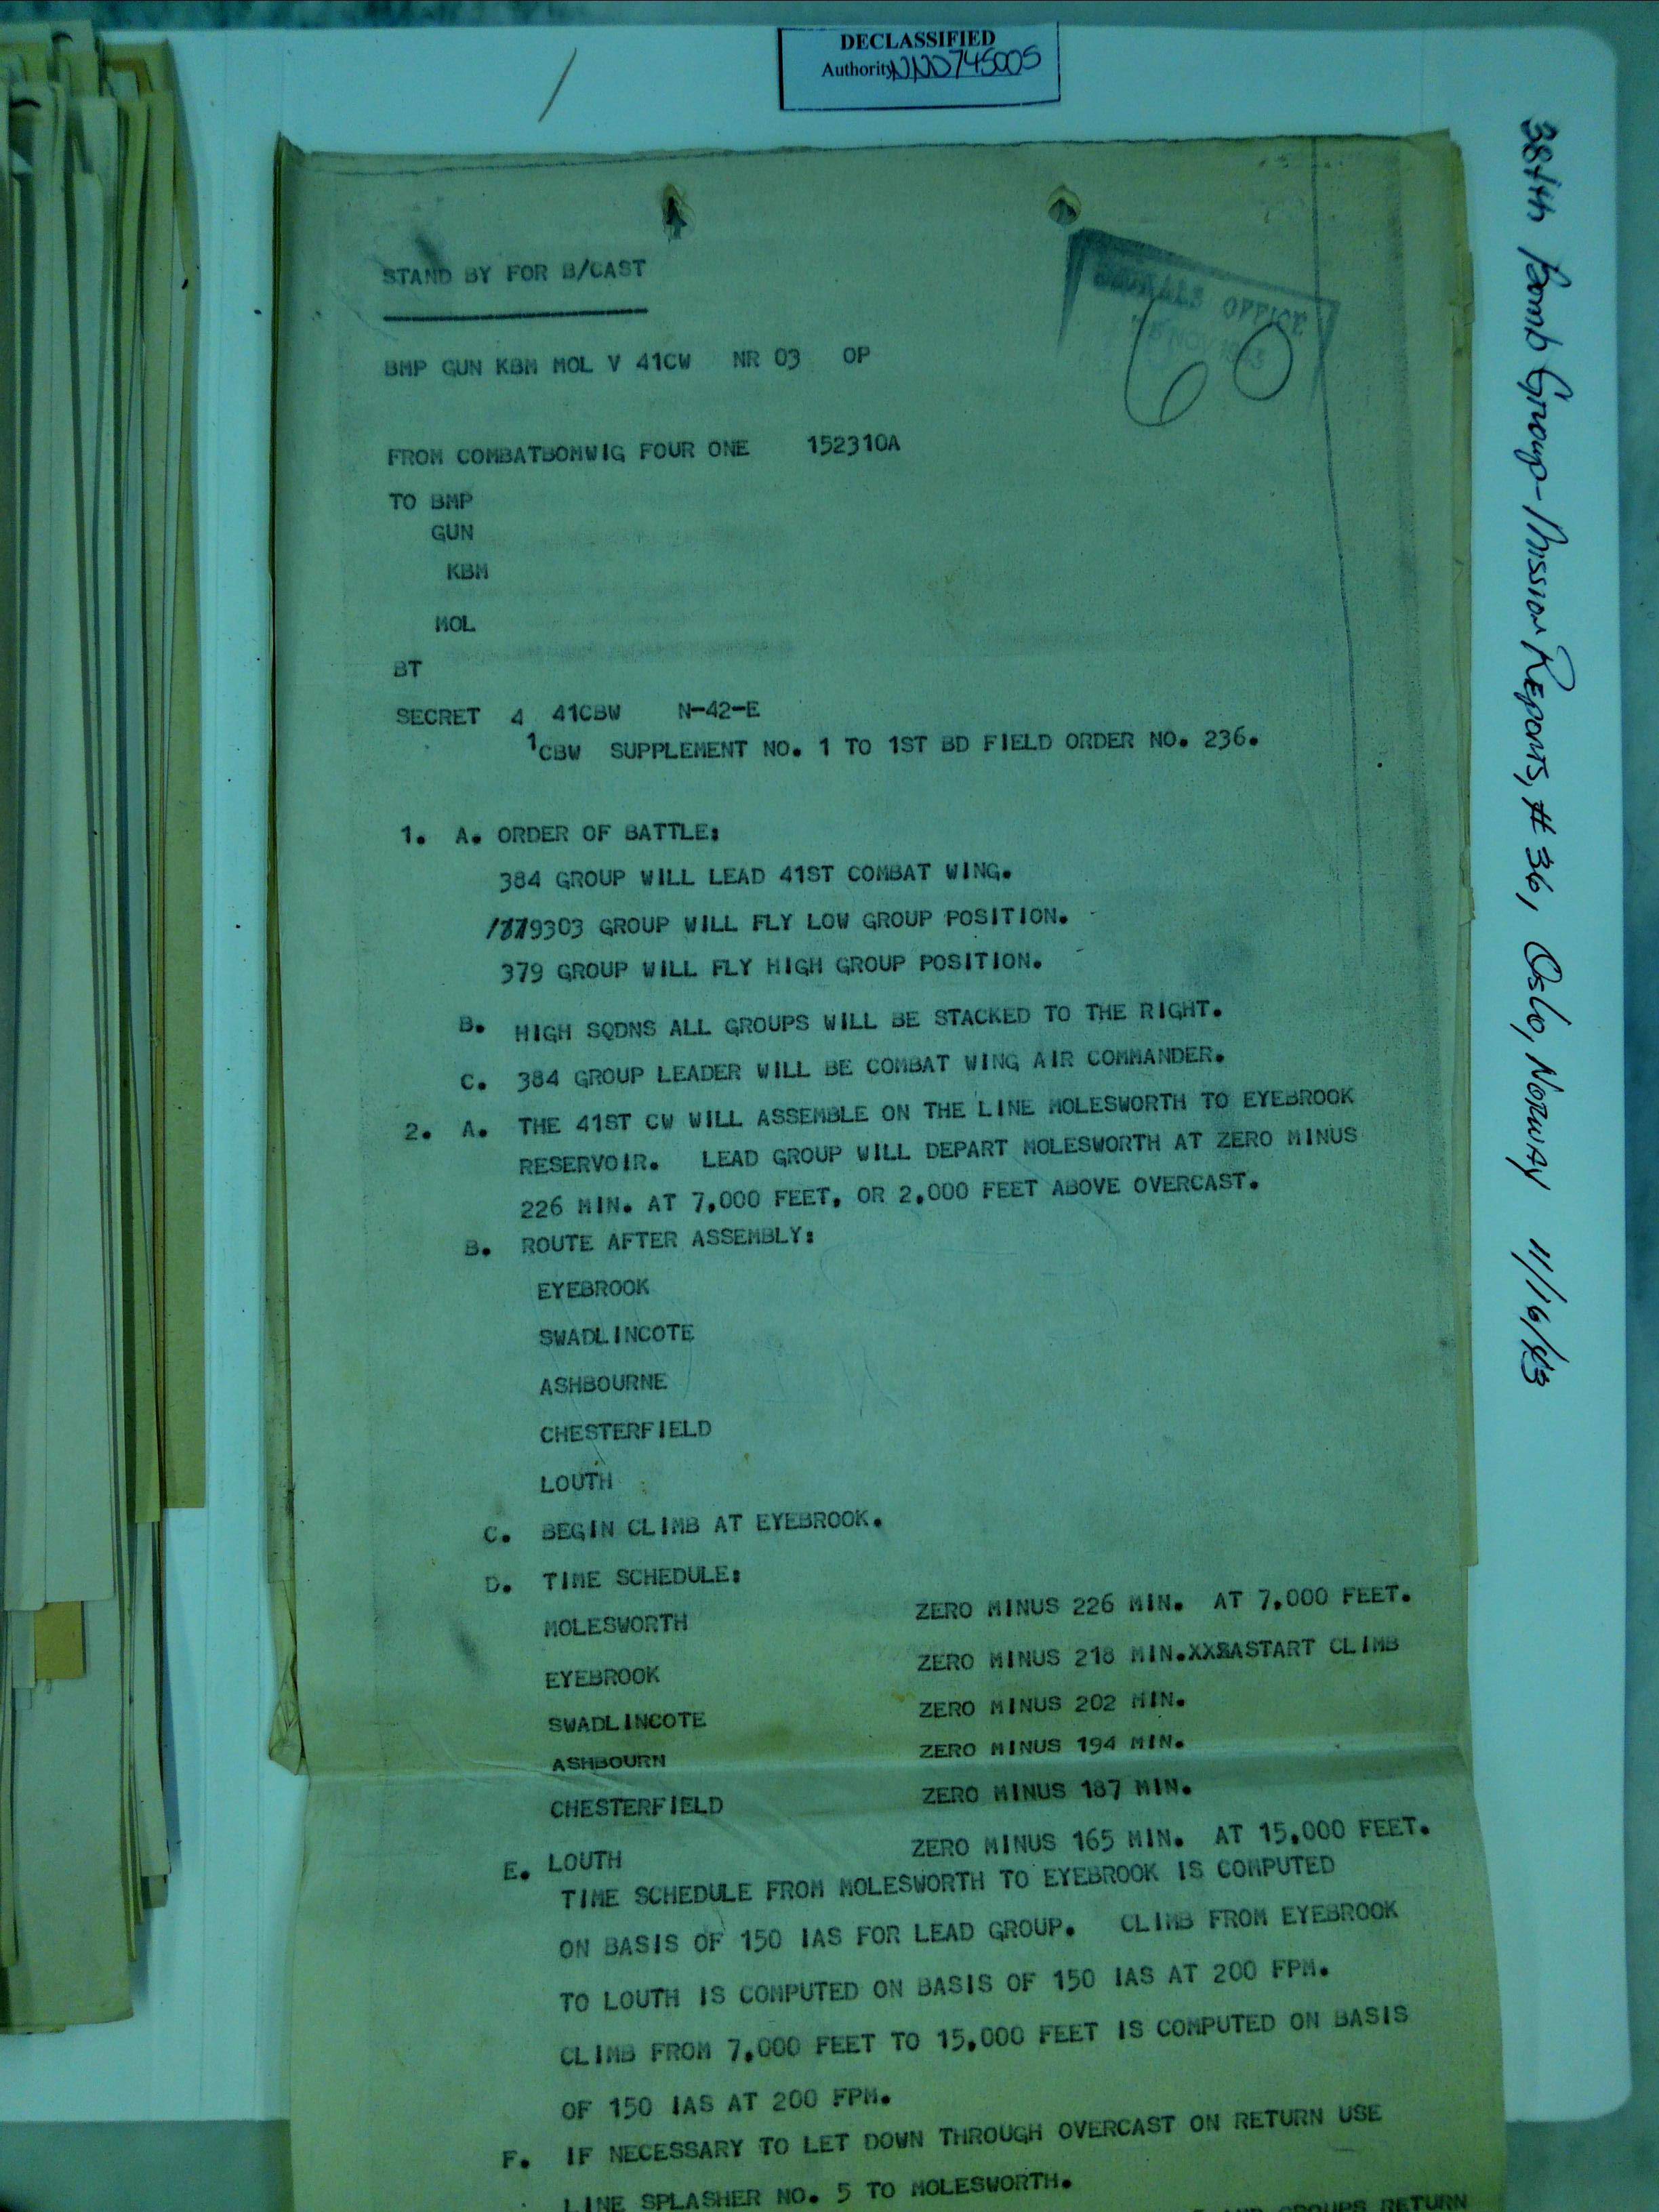 DECLASSIFIED
Authority NND745005
384th Bomb Group-Mission Reports, # 36, Oslo, Norway 11/16/43
STAND BY FOR B/CAST
OFFICE
NOV 1943
60
BMP GUN KBM MOL V 41CW NR 03 OP
FROM COMBATBOMWIG FOUR ONE 152310A
TO BMP
GUN
KBM
MOL
BT
SECRET 4 41CBW N-42-E
1CBW SUPPLEMENT NO. 1 TO 1ST BD FIELD ORDER NO. 236.
1. A. ORDER OF BATTLE:
384 GROUP WILL LEAD 41ST COMBAT WING.
303 GROUP WILL FLY LOW GROUP POSITION.
379 GROUP WILL FLY HIGH GROUP POSITION.
B. HIGH SQDNS ALL GROUPS WILL BE STACKED TO THE RIGHT.
C. 384 GROUP LEADER WILL BE COMBAT WING AIR COMMANDER.
2. A. THE 41ST CW WILL ASSEMBLE ON THE LINE MOLESWORTH TO EYEBROOK
RESERVOIR. LEAD GROUP WILL DEPART MOLESWORTH AT ZERO MINUS
226 MIN. AT 7,000 FEET, OR 2,000 FEET ABOVE OVERCAST.
B. ROUTE AFTER ASSEMBLY:
EYEBROOK
SWADLINCOTE
ASHBOURNE
CHESTERFIELD
LOUTH
C. BEGIN CLIMB AT EYEBROOK.
D. TIME SCHEDULE:
MOLESWORTH ZERO MINUS 226 MIN. AT 7,000 FEET.
EYEBROOK ZERO MINUS 218 MIN. START CLIMB
SWADLINCOTE ZERO MINUS 202 MIN.
ASHBOURN ZERO MINUS 194 MIN.
CHESTERFIELD ZERO MINUS 187 MIN.
LOUTH ZERO MINUS 165 MIN. AT 15,000 FEET.
E. TIME SCHEDULE FROM MOLESWORTH TO EYEBROOK IS COMPUTED
ON BASIS OF 150 IAS FOR LEAD GROUP. CLIMB FROM EYEBROOK
TO LOUTH IS COMPUTED ON BASIS OF 150 IAS AT 200 FPM.
CLIMB FROM 7,000 FEET TO 15,000 FEET IS COMPUTED ON BASIS
OF 150 IAS AT 200 FPM.
F. IF NECESSARY TO LET DOWN THROUGH OVERCAST ON RETURN USE
LINE SPLASHER NO. 5 TO MOLESWORTH.
GROUPS RETURN